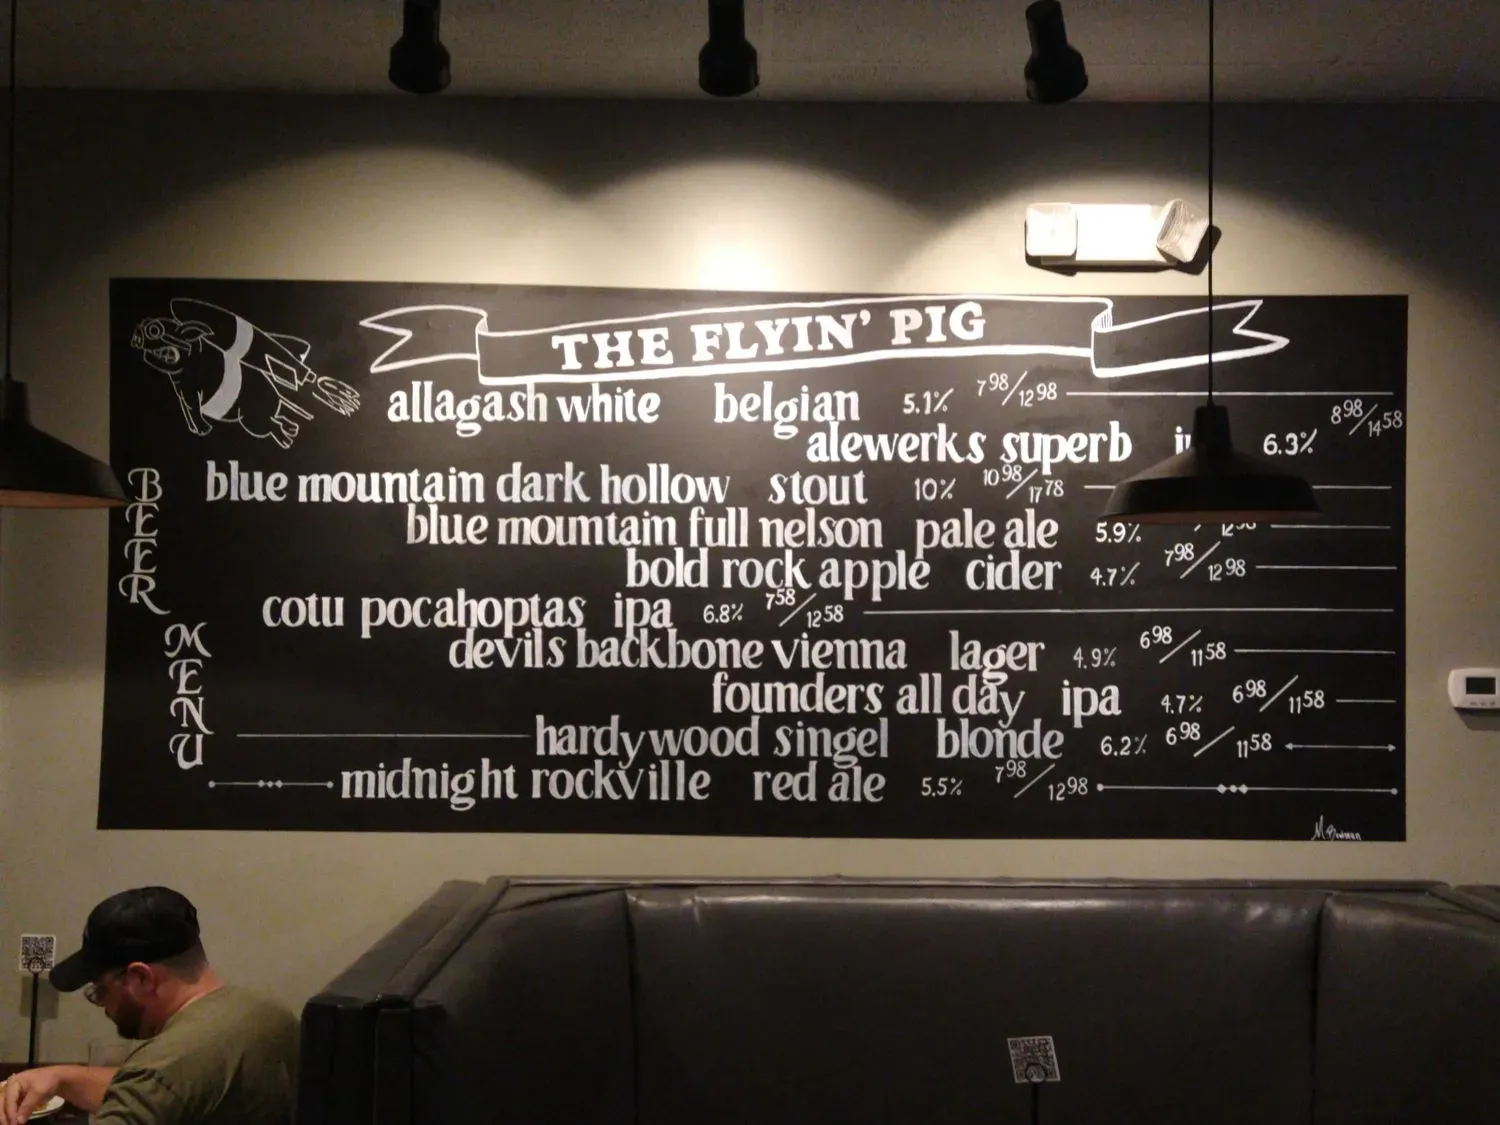 THE FLYIN' PIG
allagash white belgian 5.1% 7⁹⁸/12⁹⁸
alewerks superb 6.3% 8⁹⁸/14⁵⁸
blue mountain dark hollow stout 10% 10⁹⁸/17⁷⁸
blue mountain full nelson pale ale 5.9%
bold rock apple cider 4.7% 7⁹⁸/12⁹⁸
cotu pocahoptas ipa 6.8% 7⁵⁸/12⁵⁸
devils backbone vienna lager 4.9% 6⁹⁸/11⁵⁸
founders all day ipa 4.7% 6⁹⁸/11⁵⁸
hardywood singel blonde 6.2% 6⁹⁸/11⁵⁸
midnight rockville red ale 5.5% 7⁹⁸/12⁹⁸
BEER
MENU